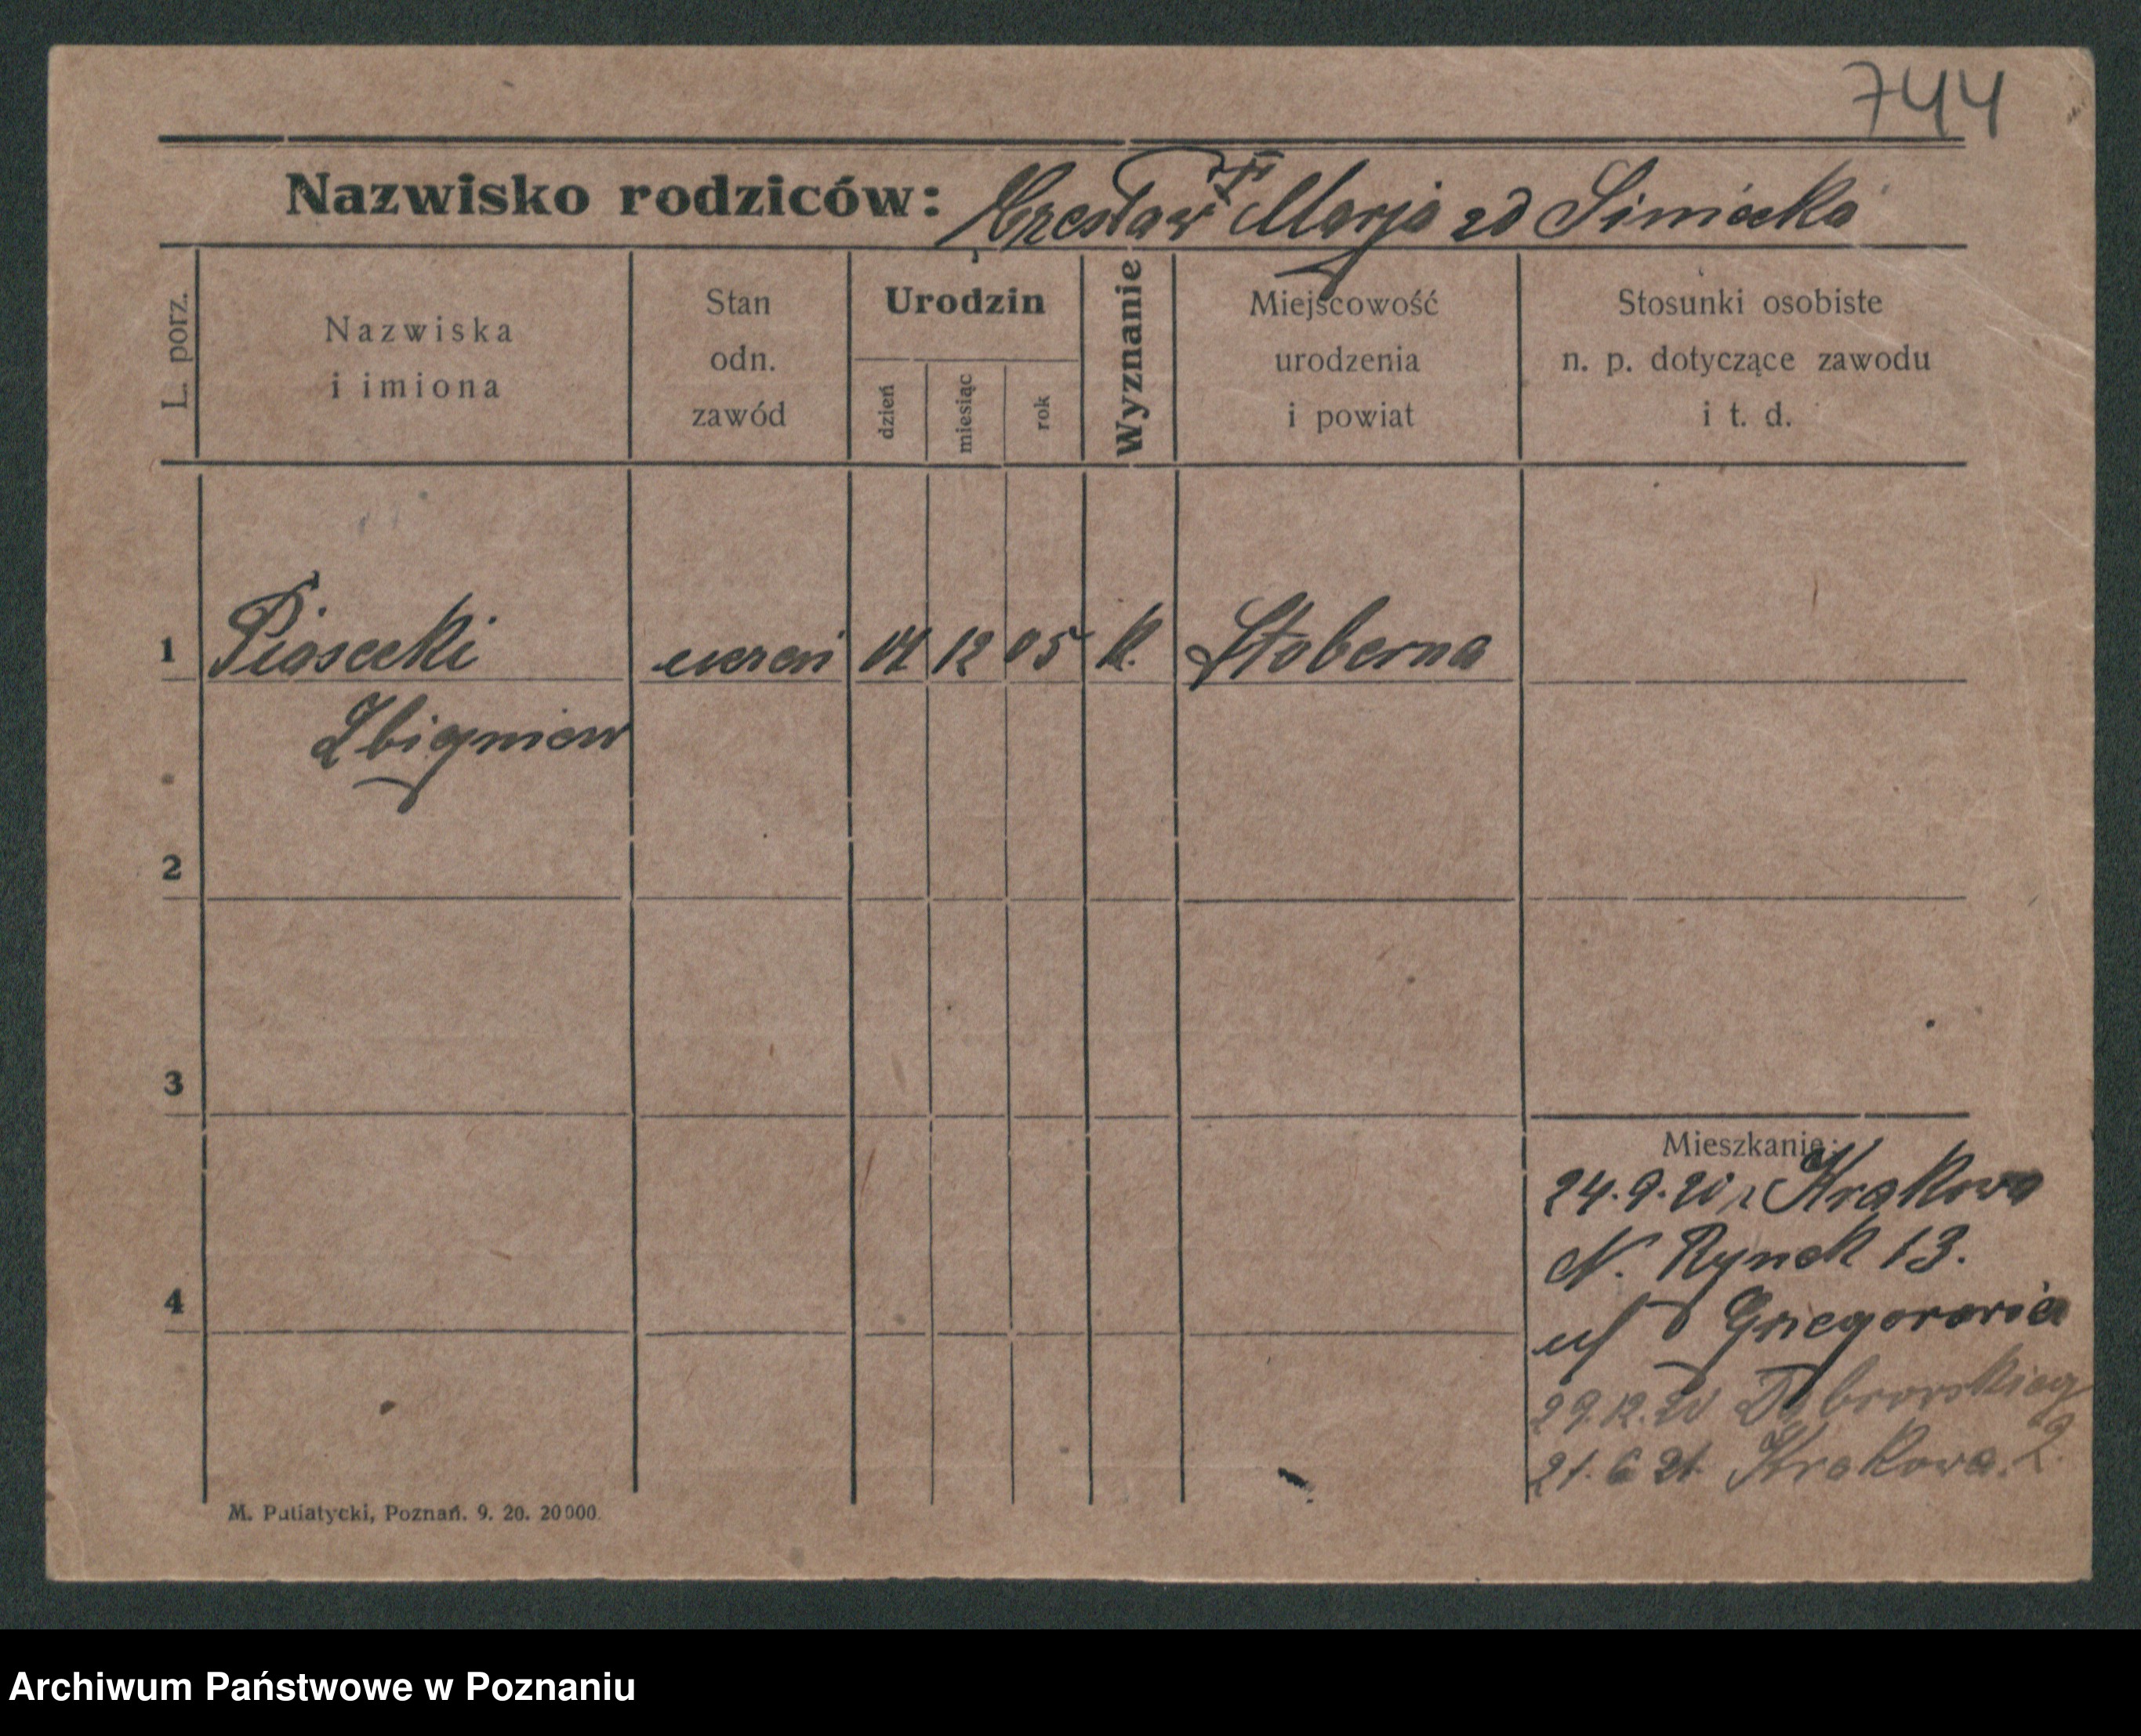 744
Nazwisko rodziców: Czesław Marja zd Siniecka
L. porz.
Nazwiska
i imiona
Stan
odn.
zawód
Urodzin
dzień
miesiąc
rok
Wyznanie
Miejscowość
urodzenia
i powiat
Stosunki osobiste
n. p. dotyczące zawodu
i t. d.
1 Piasecki uczeń 12 05 k. Stoberna
Zbigniew
2
3
Mieszkanie:
24.9.20 z Krakowa
N. Rynek 13.
4
ul
29.12.20
21.6.21. Krakowa. 2.
M. Putiatycki, Poznań. 9. 20. 20000.
Archiwum Państwowe w Poznaniu